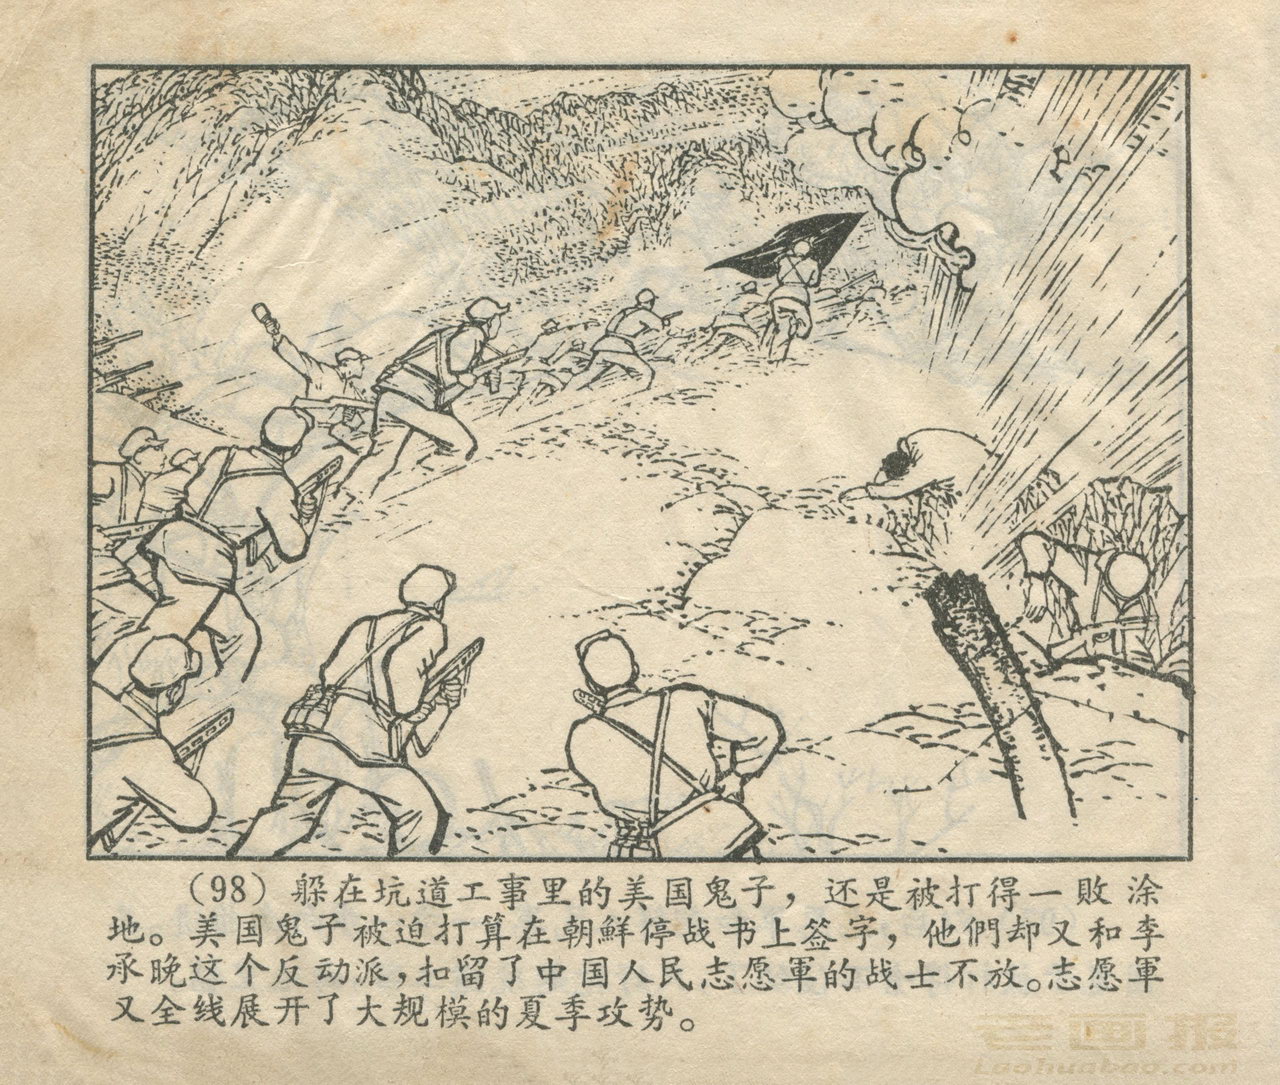 (98) 躲在坑道工事里的美国鬼子，还是被打得一败涂
地。美国鬼子被迫打算在朝鮮停战书上签字，他們却又和李
承晚这个反动派，扣留了中国人民志愿軍的战士不放。志愿軍
又全线展开了大规模的夏季攻势。
老画报
Laohuabao.com